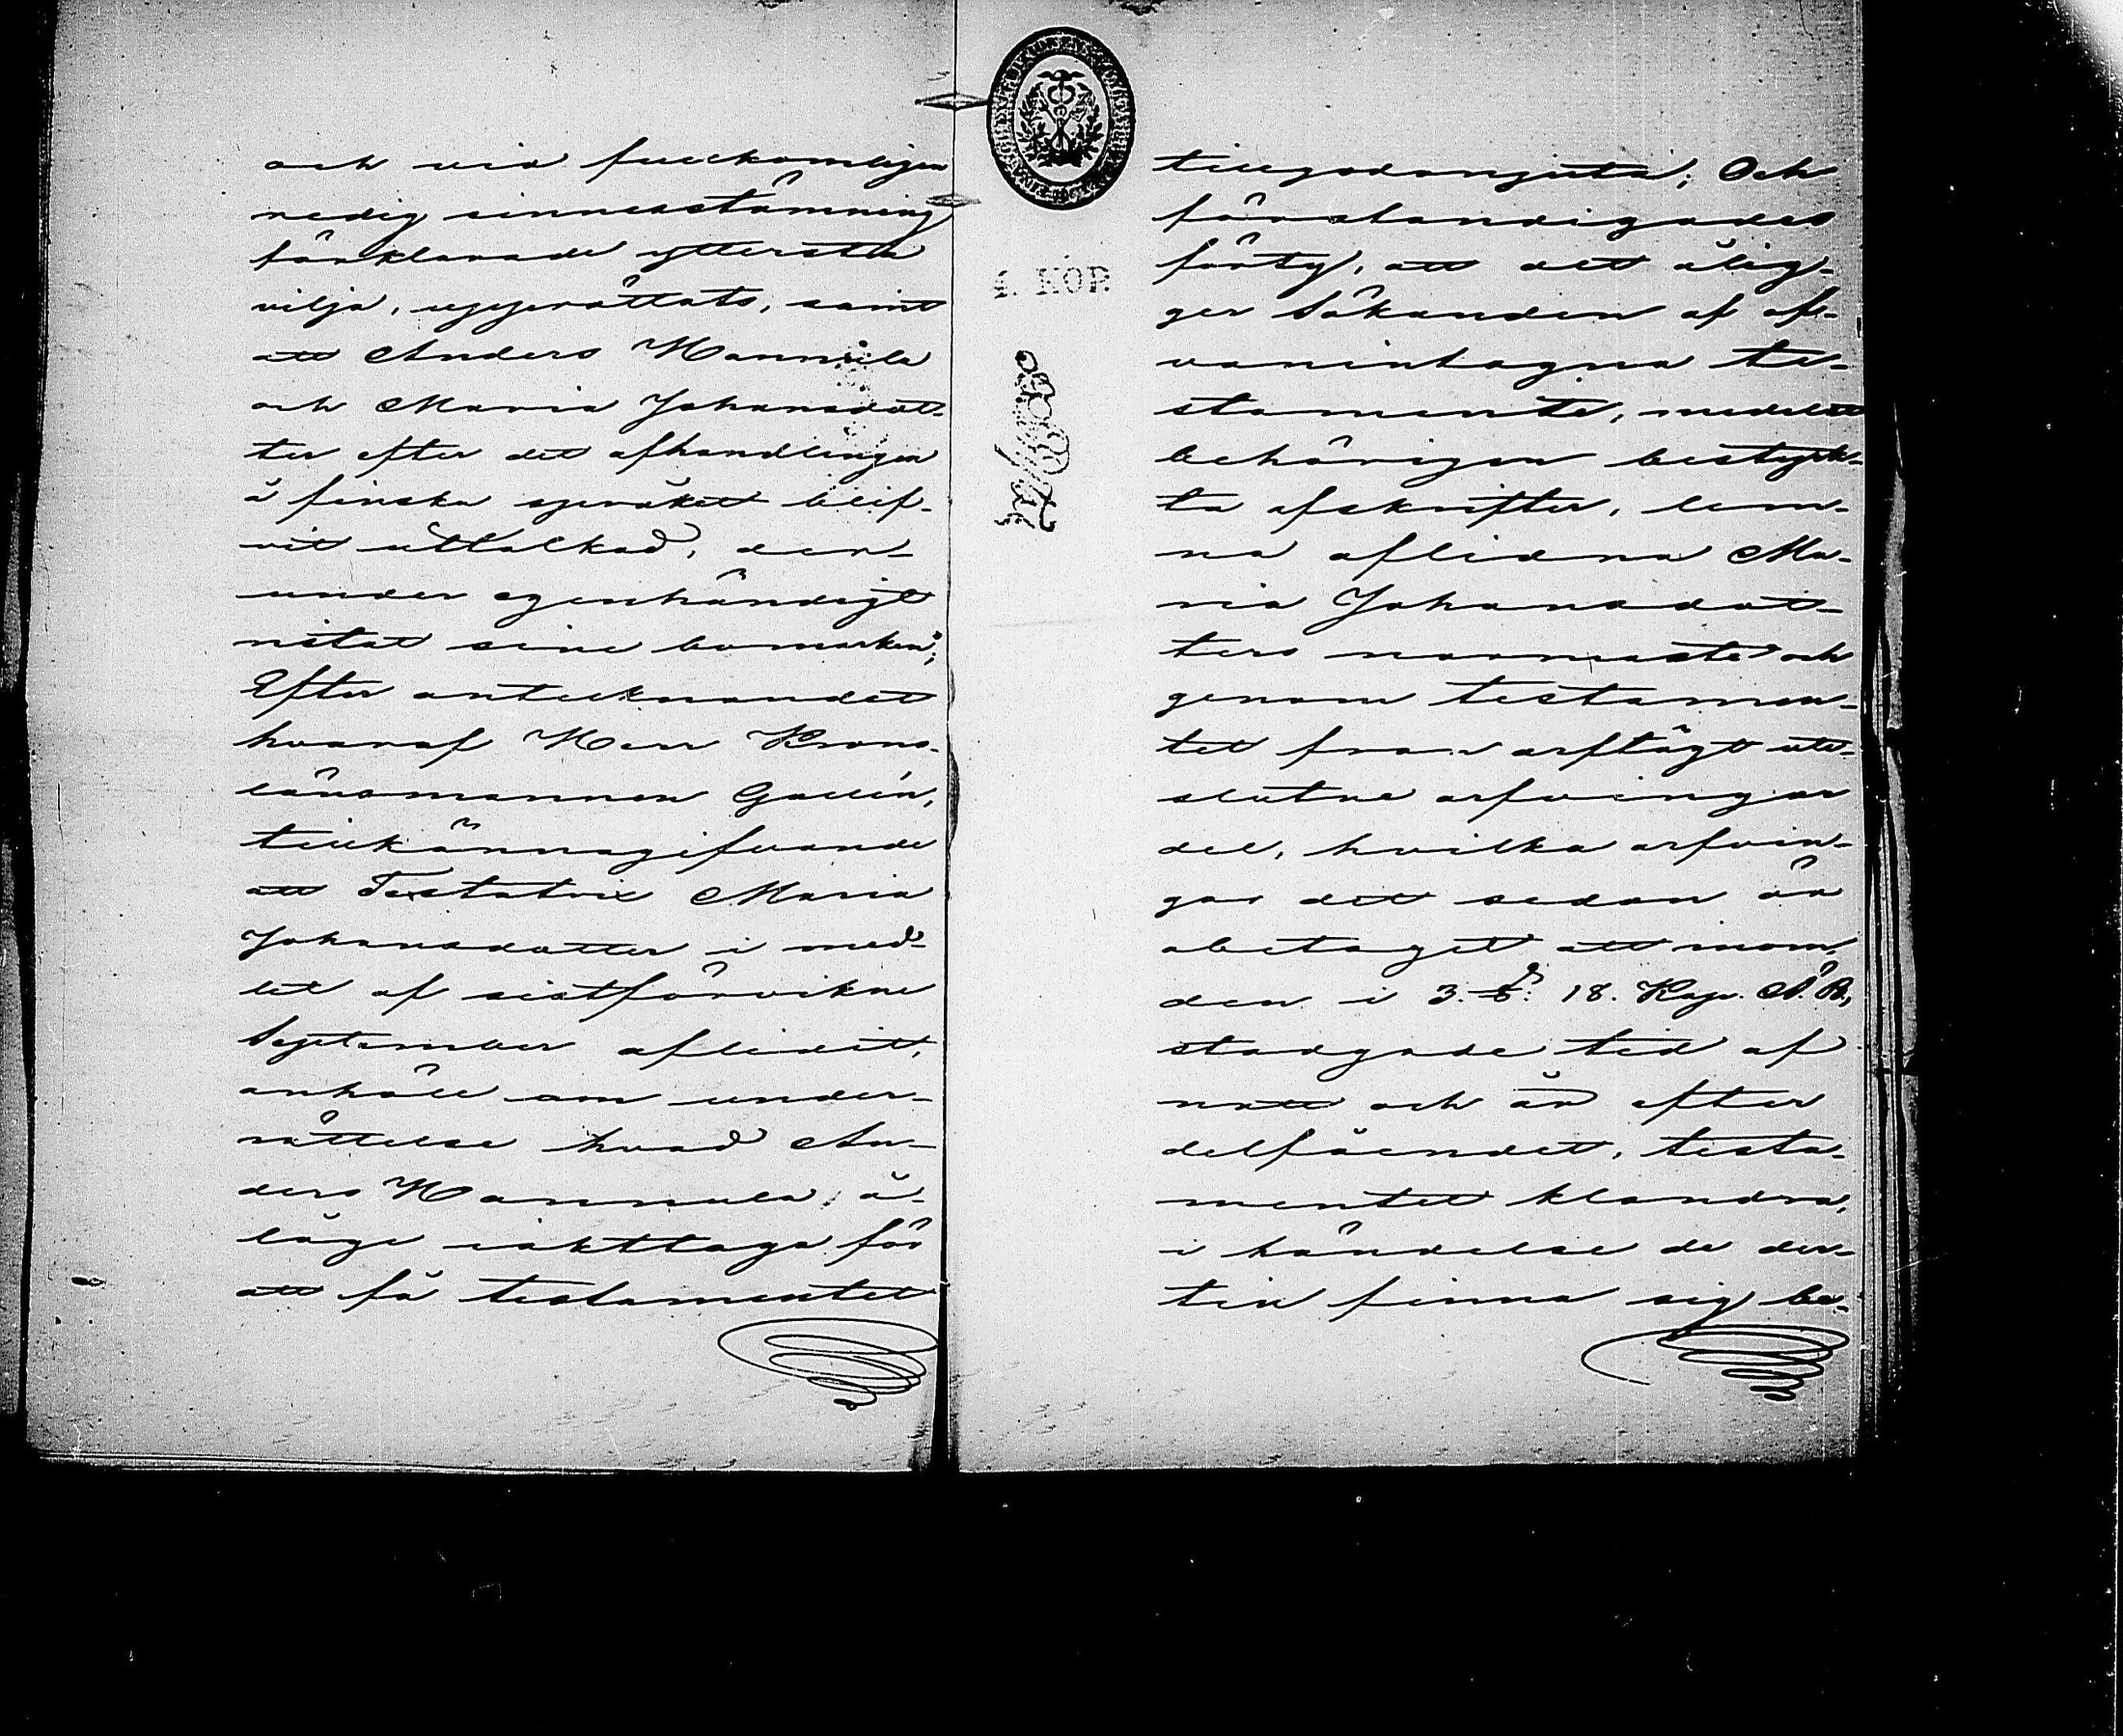 och vid fullkomligen
redig sinnesstämning
förklarade yttersta
vilja, upprättats, samt
att Anders Hannula
och Maria Johansdot-
ter efter det afhandlingen
å finska språket blif-
vit uttalkad, der-
under egenhändigt
ristat sine bomärken;
Efter antecknandet
hvaraf Herr Krono-
länsmannen Gallén,
tillkännagifvande
att Testatrix Maria
Johansdotter i med-
let af sistförvikne
September aflidit,
anhöll om under-
rättelse hvad An-
ders Hannula å-
läge iakttaga för
att få testamentet
4. KOP.
tillgodonjuta; Och
förständigades
förty, att det ålig-
ger Sökanden af of-
vanintagna te-
stamente, medelst
behörigen bestyrk-
ta afskrifter, lem-
na aflidna Ma-
ria Johansdot-
ters närmaste och
genom testamen-
tet från arflägt ute-
slutne arfvingar
del, hvilka arfvin-
gar det sedan är
obetaget att inom
den i 3. §. 18. Kap. Ä. B.,
stadgade tid af
natt och år efter
delfåendet, testa-
mentet klandra,
i händelse de der-
till finna sig be-